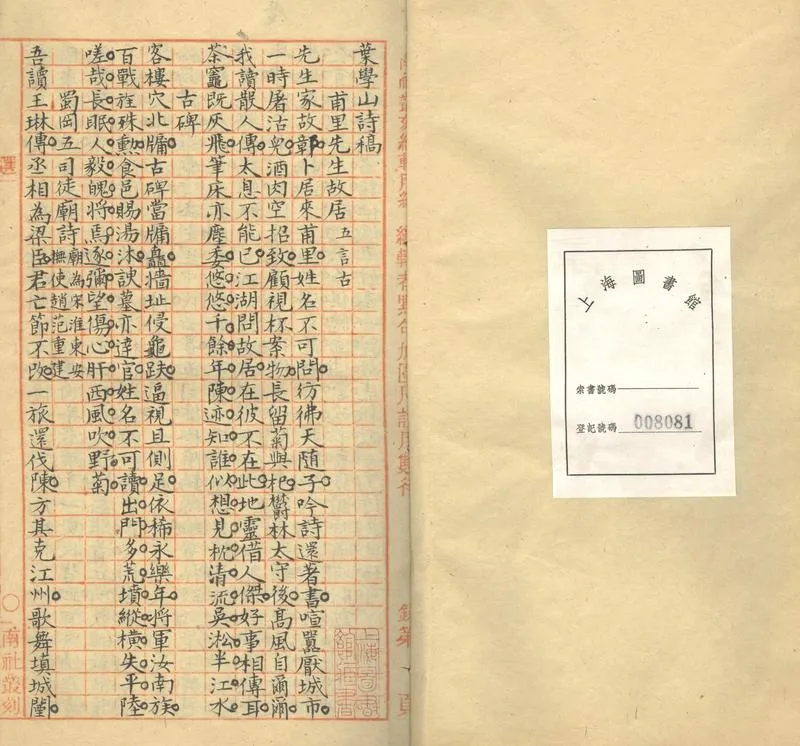 葉學山詩稿
甫里先生故居 五言古
先生家故鄣卜居來甫里姓名不可問彷彿天随子吟詩還著書喧囂厭城市
一時屠沽兒酒肉空招致顧視杯案物長留菊與杞欝林太守後高風自爾爾
我讀散人傳太息不能已江湖問故居在彼不在此地靈借人傑好事相傳耳
茶竈既灰飛筆床亦塵委悠悠千餘年陳迹知誰似想見枕清流吳淞半江水
古碑
客樓穴北牖古碑當牖矗墻址侵龜趺逼視且側足依稀永樂年將軍汝南族
百戰旌殊勲食邑賜湯沐諛墓亦達官姓名不可讀出門多荒墳縱横失平陸
嗟哉長眠人毅魄將焉逐彌望傷心肝西風吹野菊
蜀岡五司徒廟詩 廟為宋淮東安撫使趙范重建
吾讀王琳傳丞相為梁臣君亡節不改一旅還伐陳方其克江州歌舞填城闉
選
南社叢刻
第 頁
上海圖書館
索書號碼
登記號碼 008081